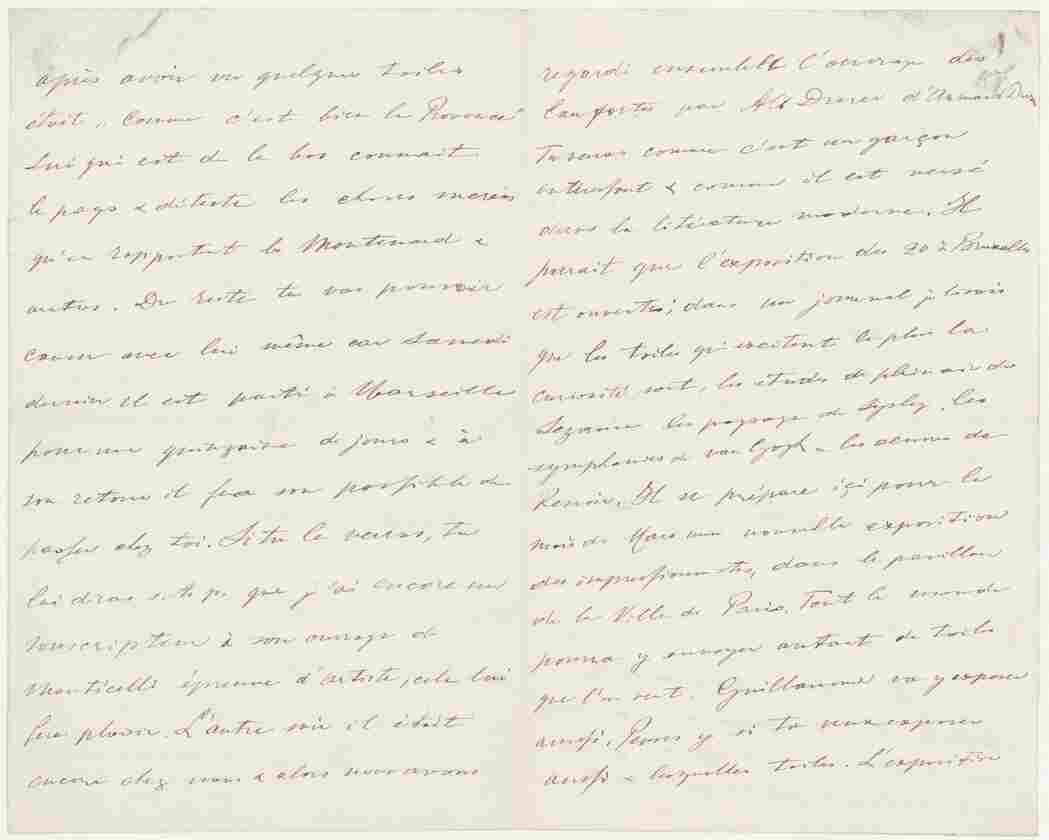 après avoir vu quelques toiles
était: Comme c'est bien la Provence
Lui qui est de là bas connait
le pays & déteste les choses sucrées
qu'en rapportent les Montenard &
autres. Du reste tu vas pouvoir
causer avec lui même car Samedi
dernier il est parti à Marseille
pour une quinzaine de jours & à
son retour il fera son possible de
passer chez toi. Si tu le verras, tu
lui diras s.t.p. que j'ai encore un
souscripteur à son ouvrage de
Monticelli épreuve d'artiste, cela lui
fera plaisir. L'autre soir il était
encore chez nous & alors nous avons
regardé ensemble l'ouvrage des
eau fortes par Alb Durer d'Amand Dur
Tu verras comme c'est un garçon
intéressant & comme il est versé
dans la literature moderne. Il
parait que l'exposition des 20 à Bruxelles
est ouverte; dans un journal je lisais
que les toiles qui excitent le plus la
curiosité sont, les études de plein air de
Sezanne les paysages de Sysley, les
symphonies de van Gogh & les oeuvres de
Renoir. Il se prépare içi pour le
mois de Mars une nouvelle exposition
des impressionnistes, dans le pavillon
de la Ville de Paris. Tout le monde
pourra y envoyer autant de toiles
que l'on veut. Guillaumin va y exposer
aussi. Penses y si tu veux exposer
aussi & lesquelles toiles. L'exposition